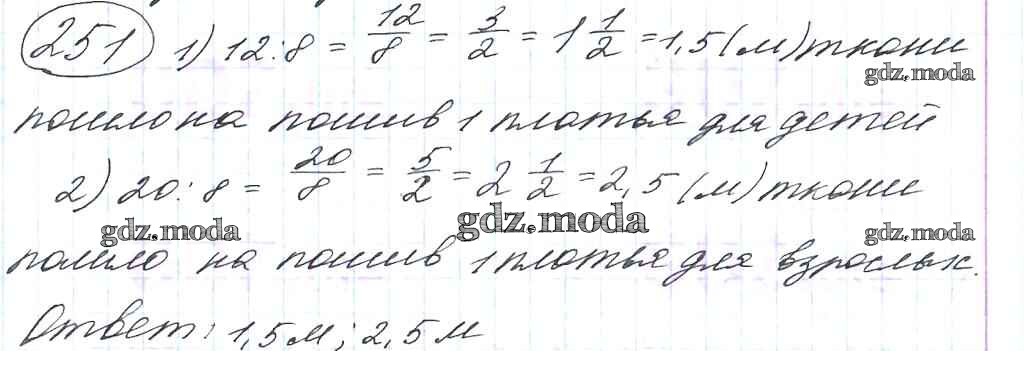 251 1) 12:8 = 12/8 = 3/2 = 1 1/2 = 1,5 (м) ткани
gdz.moda
пошло на пошив 1 платья для детей
2) 20:8 = 20/8 = 5/2 = 2 1/2 = 2,5 (м) ткани
gdz.moda gdz.moda gdz.moda
пошло на пошив 1 платья для взрослых.
Ответ: 1,5 м; 2,5 м